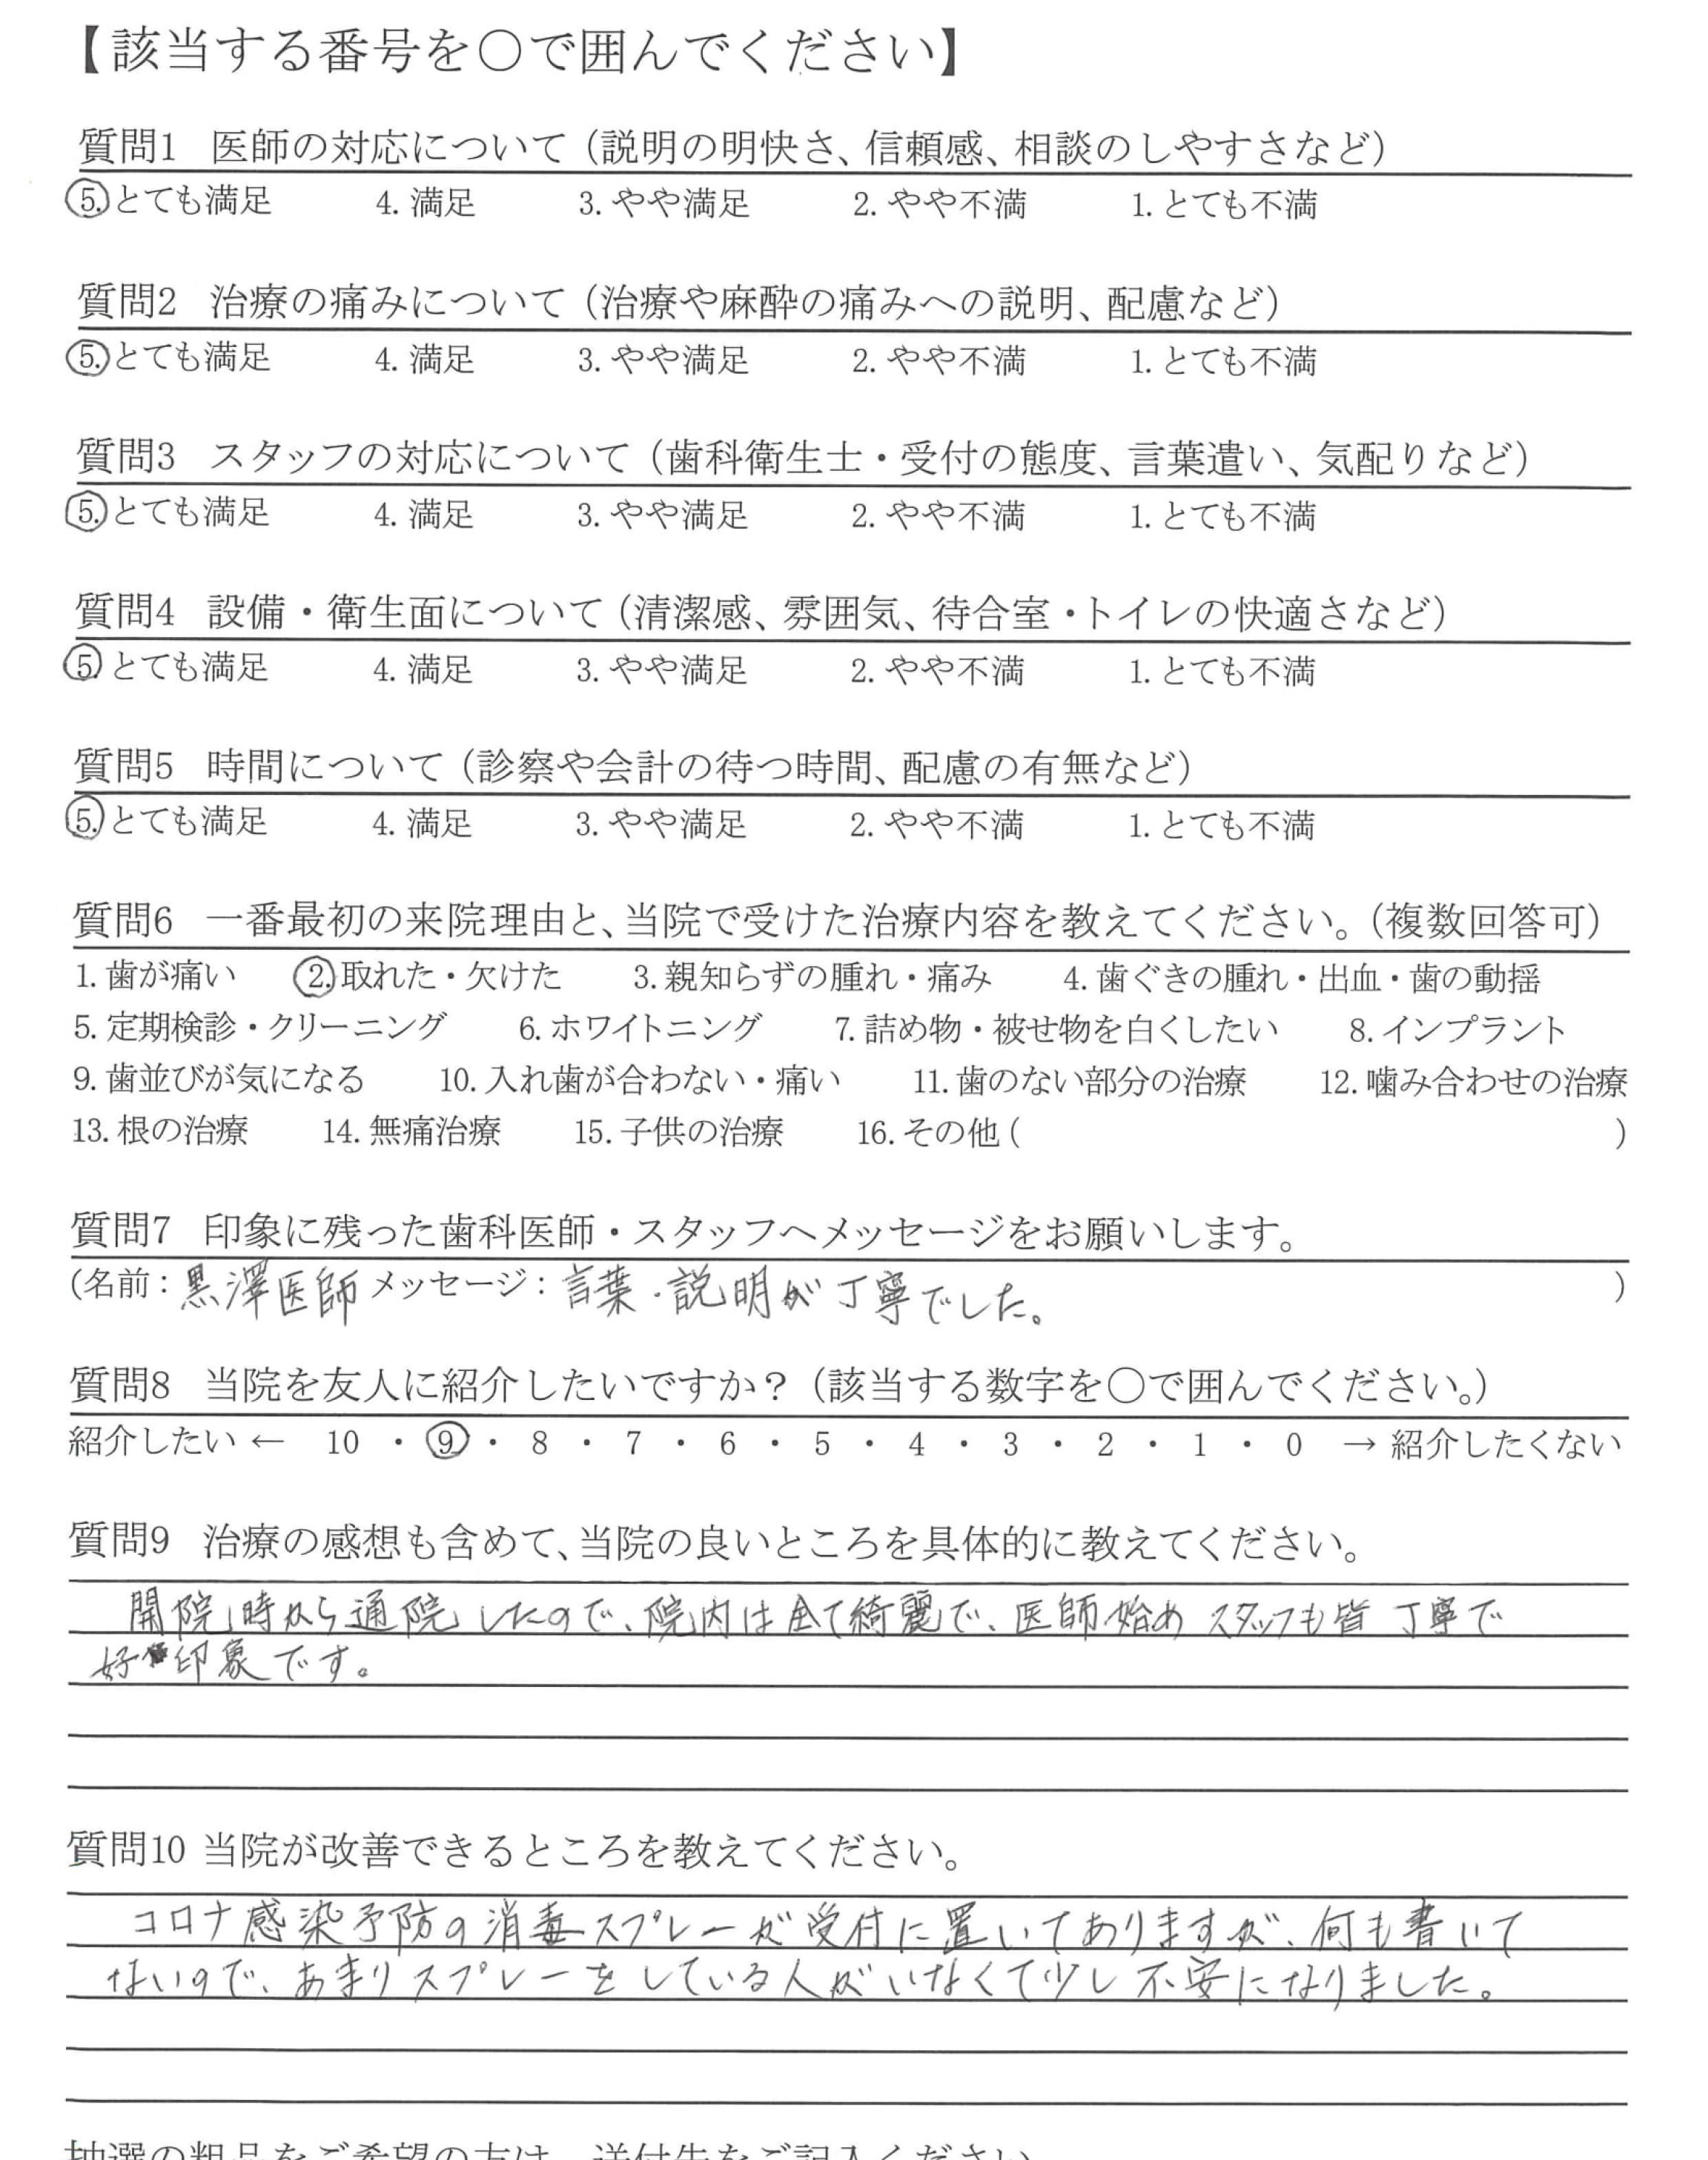 【該当する番号を〇で囲んでください】
質問1 医師の対応について（説明の明快さ、信頼感、相談のしやすさなど）
5.とても満足 4.満足 3.やや満足 2.やや不満 1.とても不満
質問2 治療の痛みについて（治療や麻酔の痛みへの説明、配慮など）
5.とても満足 4.満足 3.やや満足 2.やや不満 1.とても不満
質問3 スタッフの対応について（歯科衛生士・受付の態度、言葉遣い、気配りなど）
5.とても満足 4.満足 3.やや満足 2.やや不満 1.とても不満
質問4 設備・衛生面について（清潔感、雰囲気、待合室・トイレの快適さなど）
5.とても満足 4.満足 3.やや満足 2.やや不満 1.とても不満
質問5 時間について（診察や会計の待つ時間、配慮の有無など）
5.とても満足 4.満足 3.やや満足 2.やや不満 1.とても不満
質問6 一番最初の来院理由と、当院で受けた治療内容を教えてください。（複数回答可）
1.歯が痛い 2.取れた・欠けた 3.親知らずの腫れ・痛み 4.歯ぐきの腫れ・出血・歯の動揺
5.定期検診・クリーニング 6.ホワイトニング 7.詰め物・被せ物を白くしたい 8.インプラント
9.歯並びが気になる 10.入れ歯が合わない・痛い 11.歯のない部分の治療 12.噛み合わせの治療
13.根の治療 14.無痛治療 15.子供の治療 16.その他（ ）
質問7 印象に残った歯科医師・スタッフへメッセージをお願いします。
(名前：黒澤医師 メッセージ：言葉・説明が丁寧でした。 )
質問8 当院を友人に紹介したいですか？（該当する数字を〇で囲んでください。）
紹介したい ← 10 ・ 9 ・ 8 ・ 7 ・ 6 ・ 5 ・ 4 ・ 3 ・ 2 ・ 1 ・ 0 → 紹介したくない
質問9 治療の感想も含めて、当院の良いところを具体的に教えてください。
開院時から通院したので、院内は全て綺麗で、医師始め スタッフも皆 丁寧で
好印象です。
質問10 当院が改善できるところを教えてください。
コロナ感染予防の消毒スプレーが受付に置いてありますが、何も書いて
ないので、あまりスプレーをしている人がいなくて少し不安になりました。
抽選の粗品をご希望の方は、送付先をご記入ください